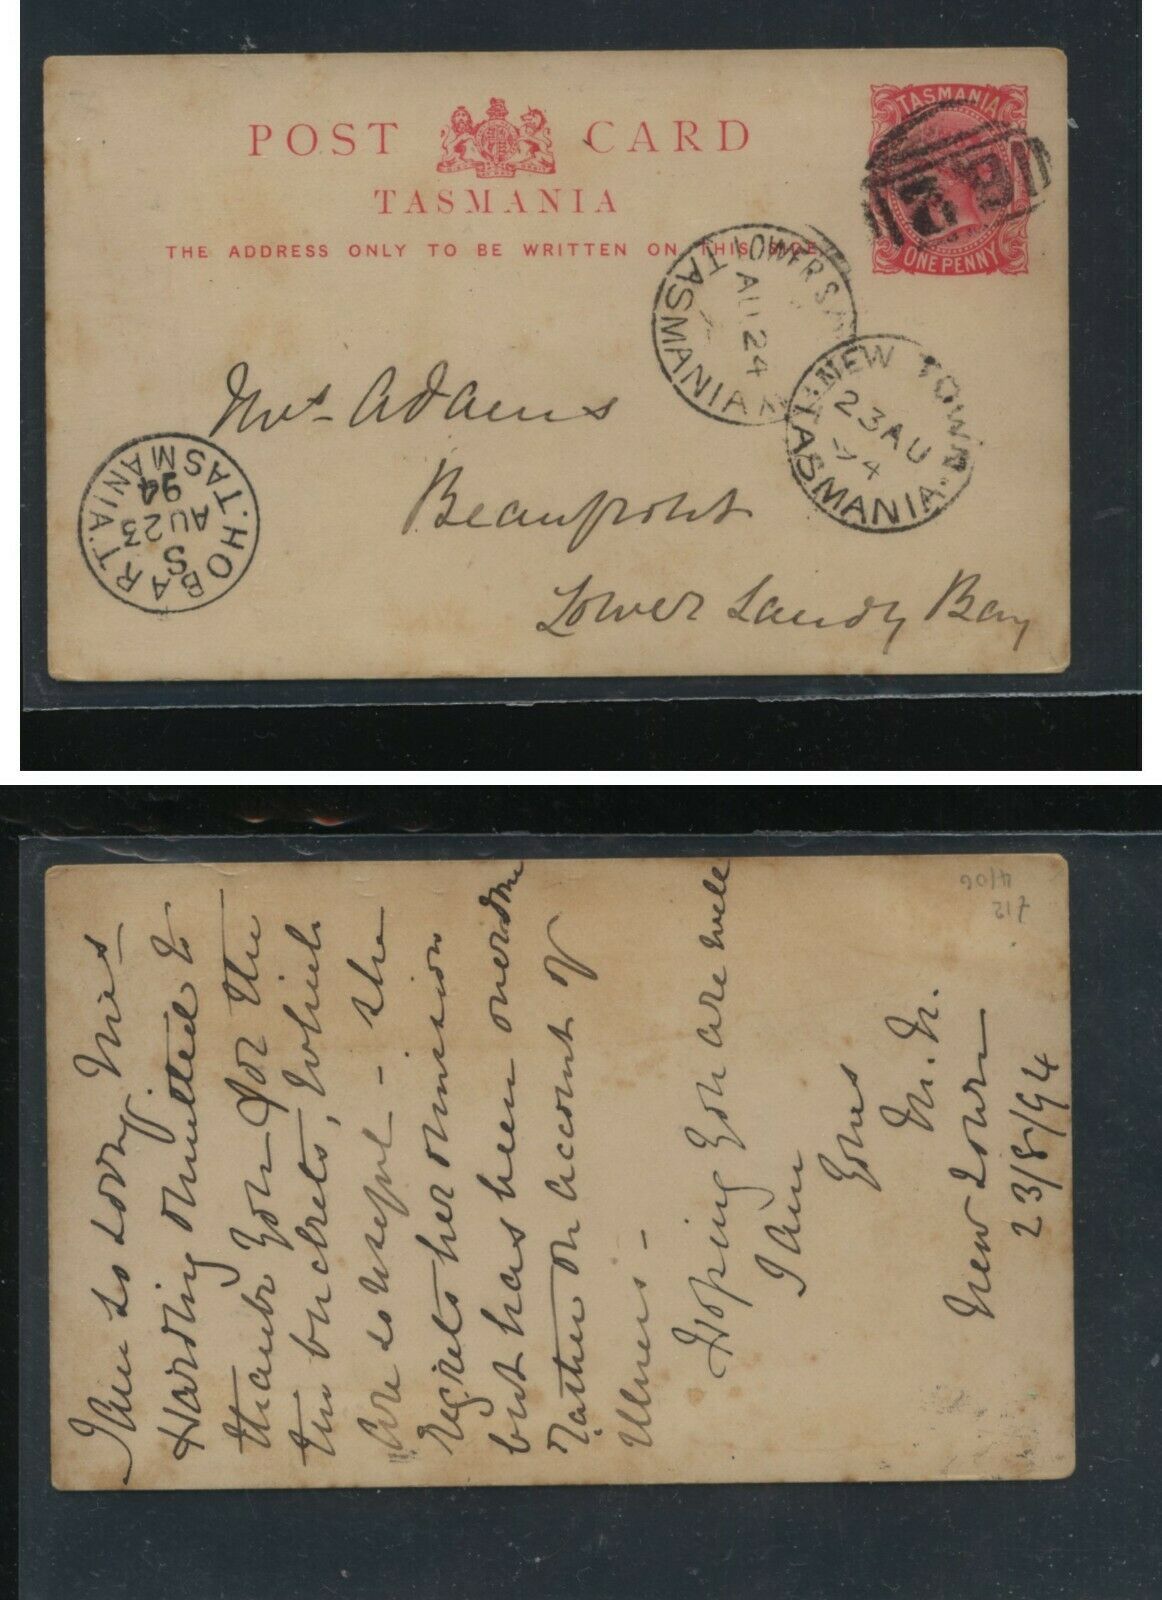 POST CARD
TASMANIA
THE ADDRESS ONLY TO BE WRITTEN ON THIS SIDE
TASMANIA
ONE PENNY
LOWER SA
AU 24
TASMANIA
NEW TOWN
23 AU
94
TASMANIA
HOBART
S
AU 23
94
TASMANIA
Mrs Adams
Beaufront
Lower Sandy Bay
712
4/06
I am so sorry Miss
Harding omitted to
thank you for the
the buckets, which
are so useful - she
regrets her omission
but has been overdone
rather on account of
illness -
Hoping you are well
I am
Yours
M. N.
New Town
23/8/94